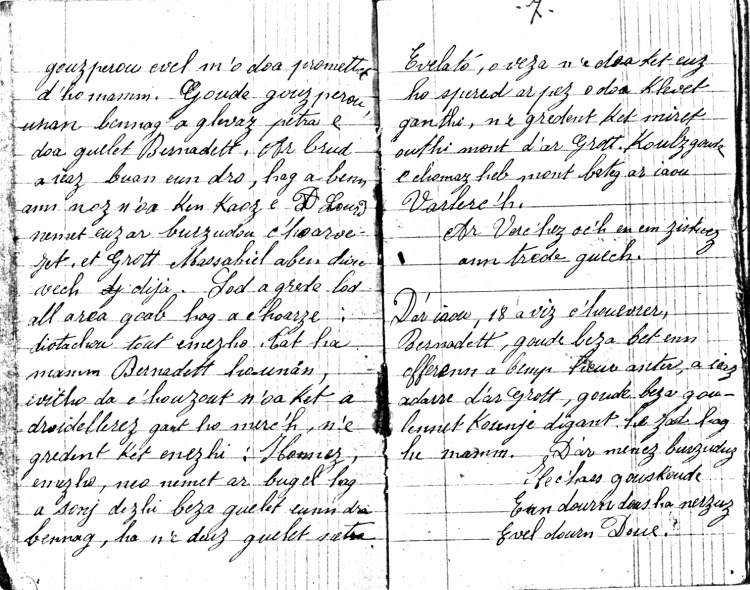 gousperou evel m'o doa promettet
d'ho mamm. Gouda gousperou,
unan bennag a glevaz petra e
doa guelet Bernadett. Ar brud
a ieaz buan eun dro, hag a benn
ann noz n'oa ken kaoz e Lourd
nemet euz ar burzudou c'hoarve-
zet, et Grott Massabiel aben diou
vech dija. Lod a grede lod
all area goab hag a c'hoarze :
diotachou tout emezho. Tat ha
mamm Bernadett hounan,
evitho da c'houzout n'oa ket a
droidellerez gant ho merc'h, n'e
gredent ket enezhi : Honnez,
emezho, neo nemet ar bugel hag
a sonj dezhi beza guelet eunn dra
bennag, ha n'e deuz guelet netra
-7-
Evelato, o veza n'e doa ket euz
ho spered ar pez o doa klevet
gantho, n'e gredent ket miret
outhi mont d'ar Grott. Koulzgoude
e chomaz heb mont beteg ar iaou
Varlerc'h.
Ar Verc'hez oc'h en em ziskuez
ann trede guech.
D'ar iaou, 18 a viz c'houevrer,
Bernadett, goude beza bet enn
offerenn a bemp heur anter, a ieaz
adarre d'ar Grott, goude beza gou-
lennet kounje digant he zad hag
he mamm. D'ar menez burzuduz
Elec'h aes gouskoude
Eun dourn dous ha nerzuz
Evel dourn Doue !